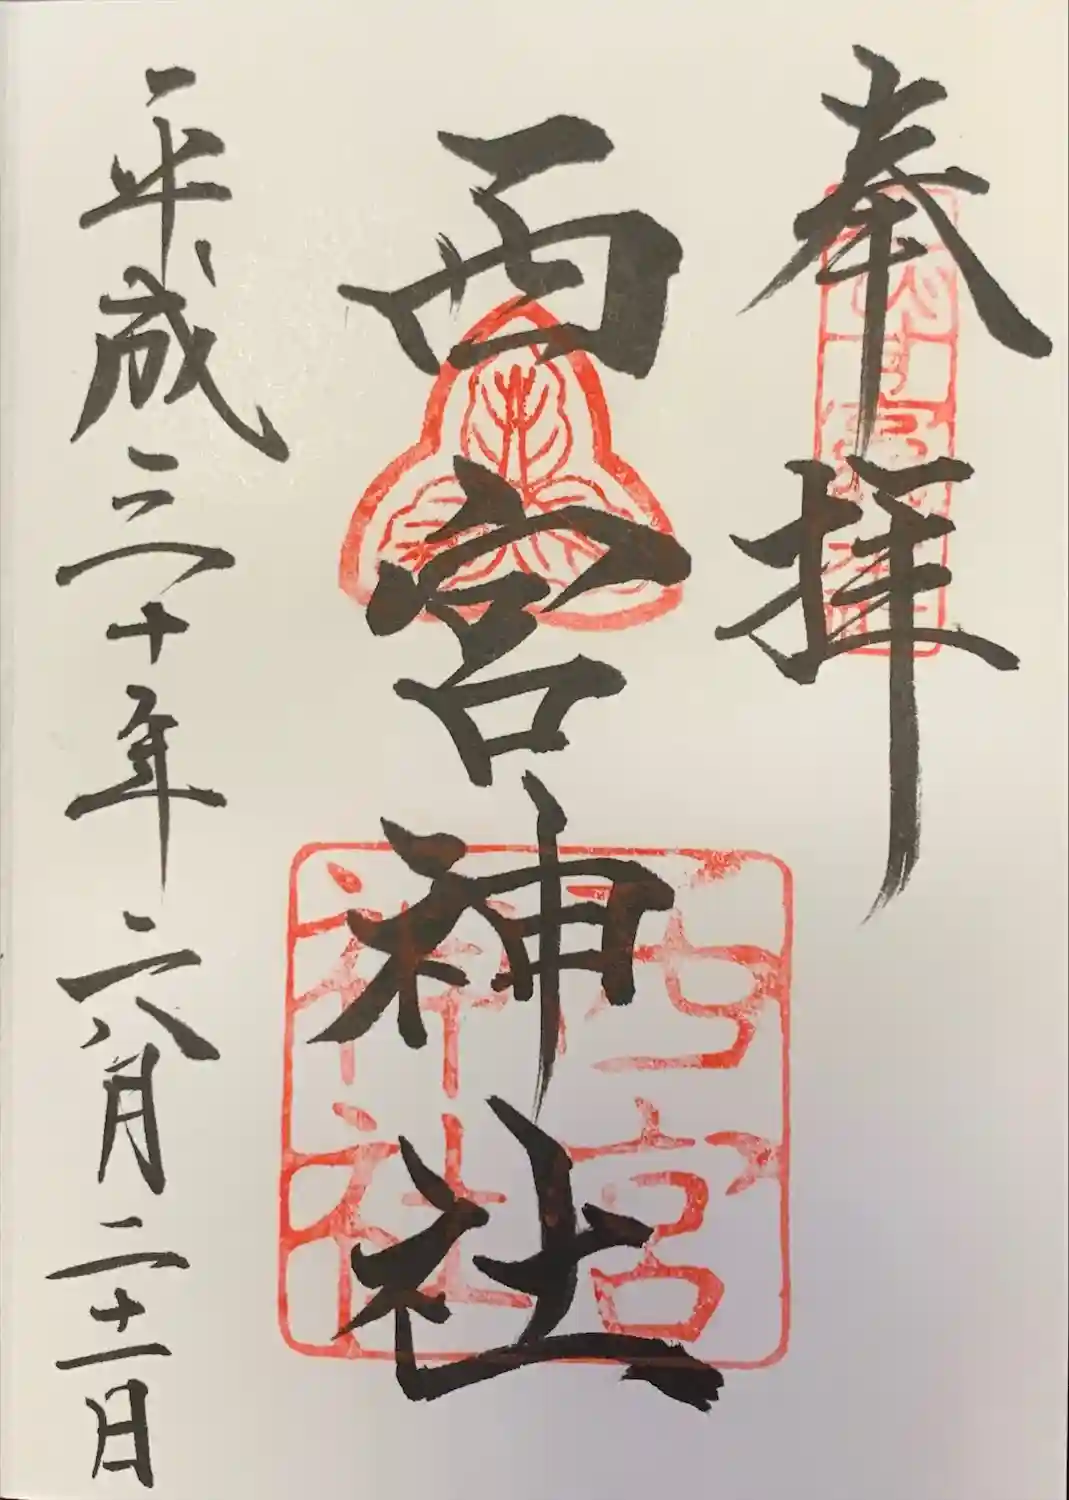 奉拝
西宮神社
平成三十年六月二十一日
西宮
神社